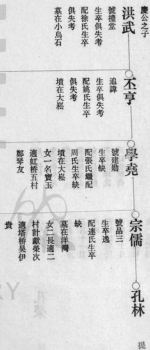 慶公之子
洪武
號禮堂
生卒俱失考
配徐氏生卒
俱失考
墓在小烏石
丕亨
追諱
生卒俱失考
配姚氏生卒
俱失考
墳在大崧
學堯
號建階
生卒缺
配張氏繼配
周氏生卒缺
墳在大崧
女一名寶玉
適虹橋五村
鄭琴友
宗儒
號品三
生卒逸
配連氏生卒
缺
墓在洋灣
女二長適二
村計獻榮次
適塔橋吳伊
貴
孔林
提